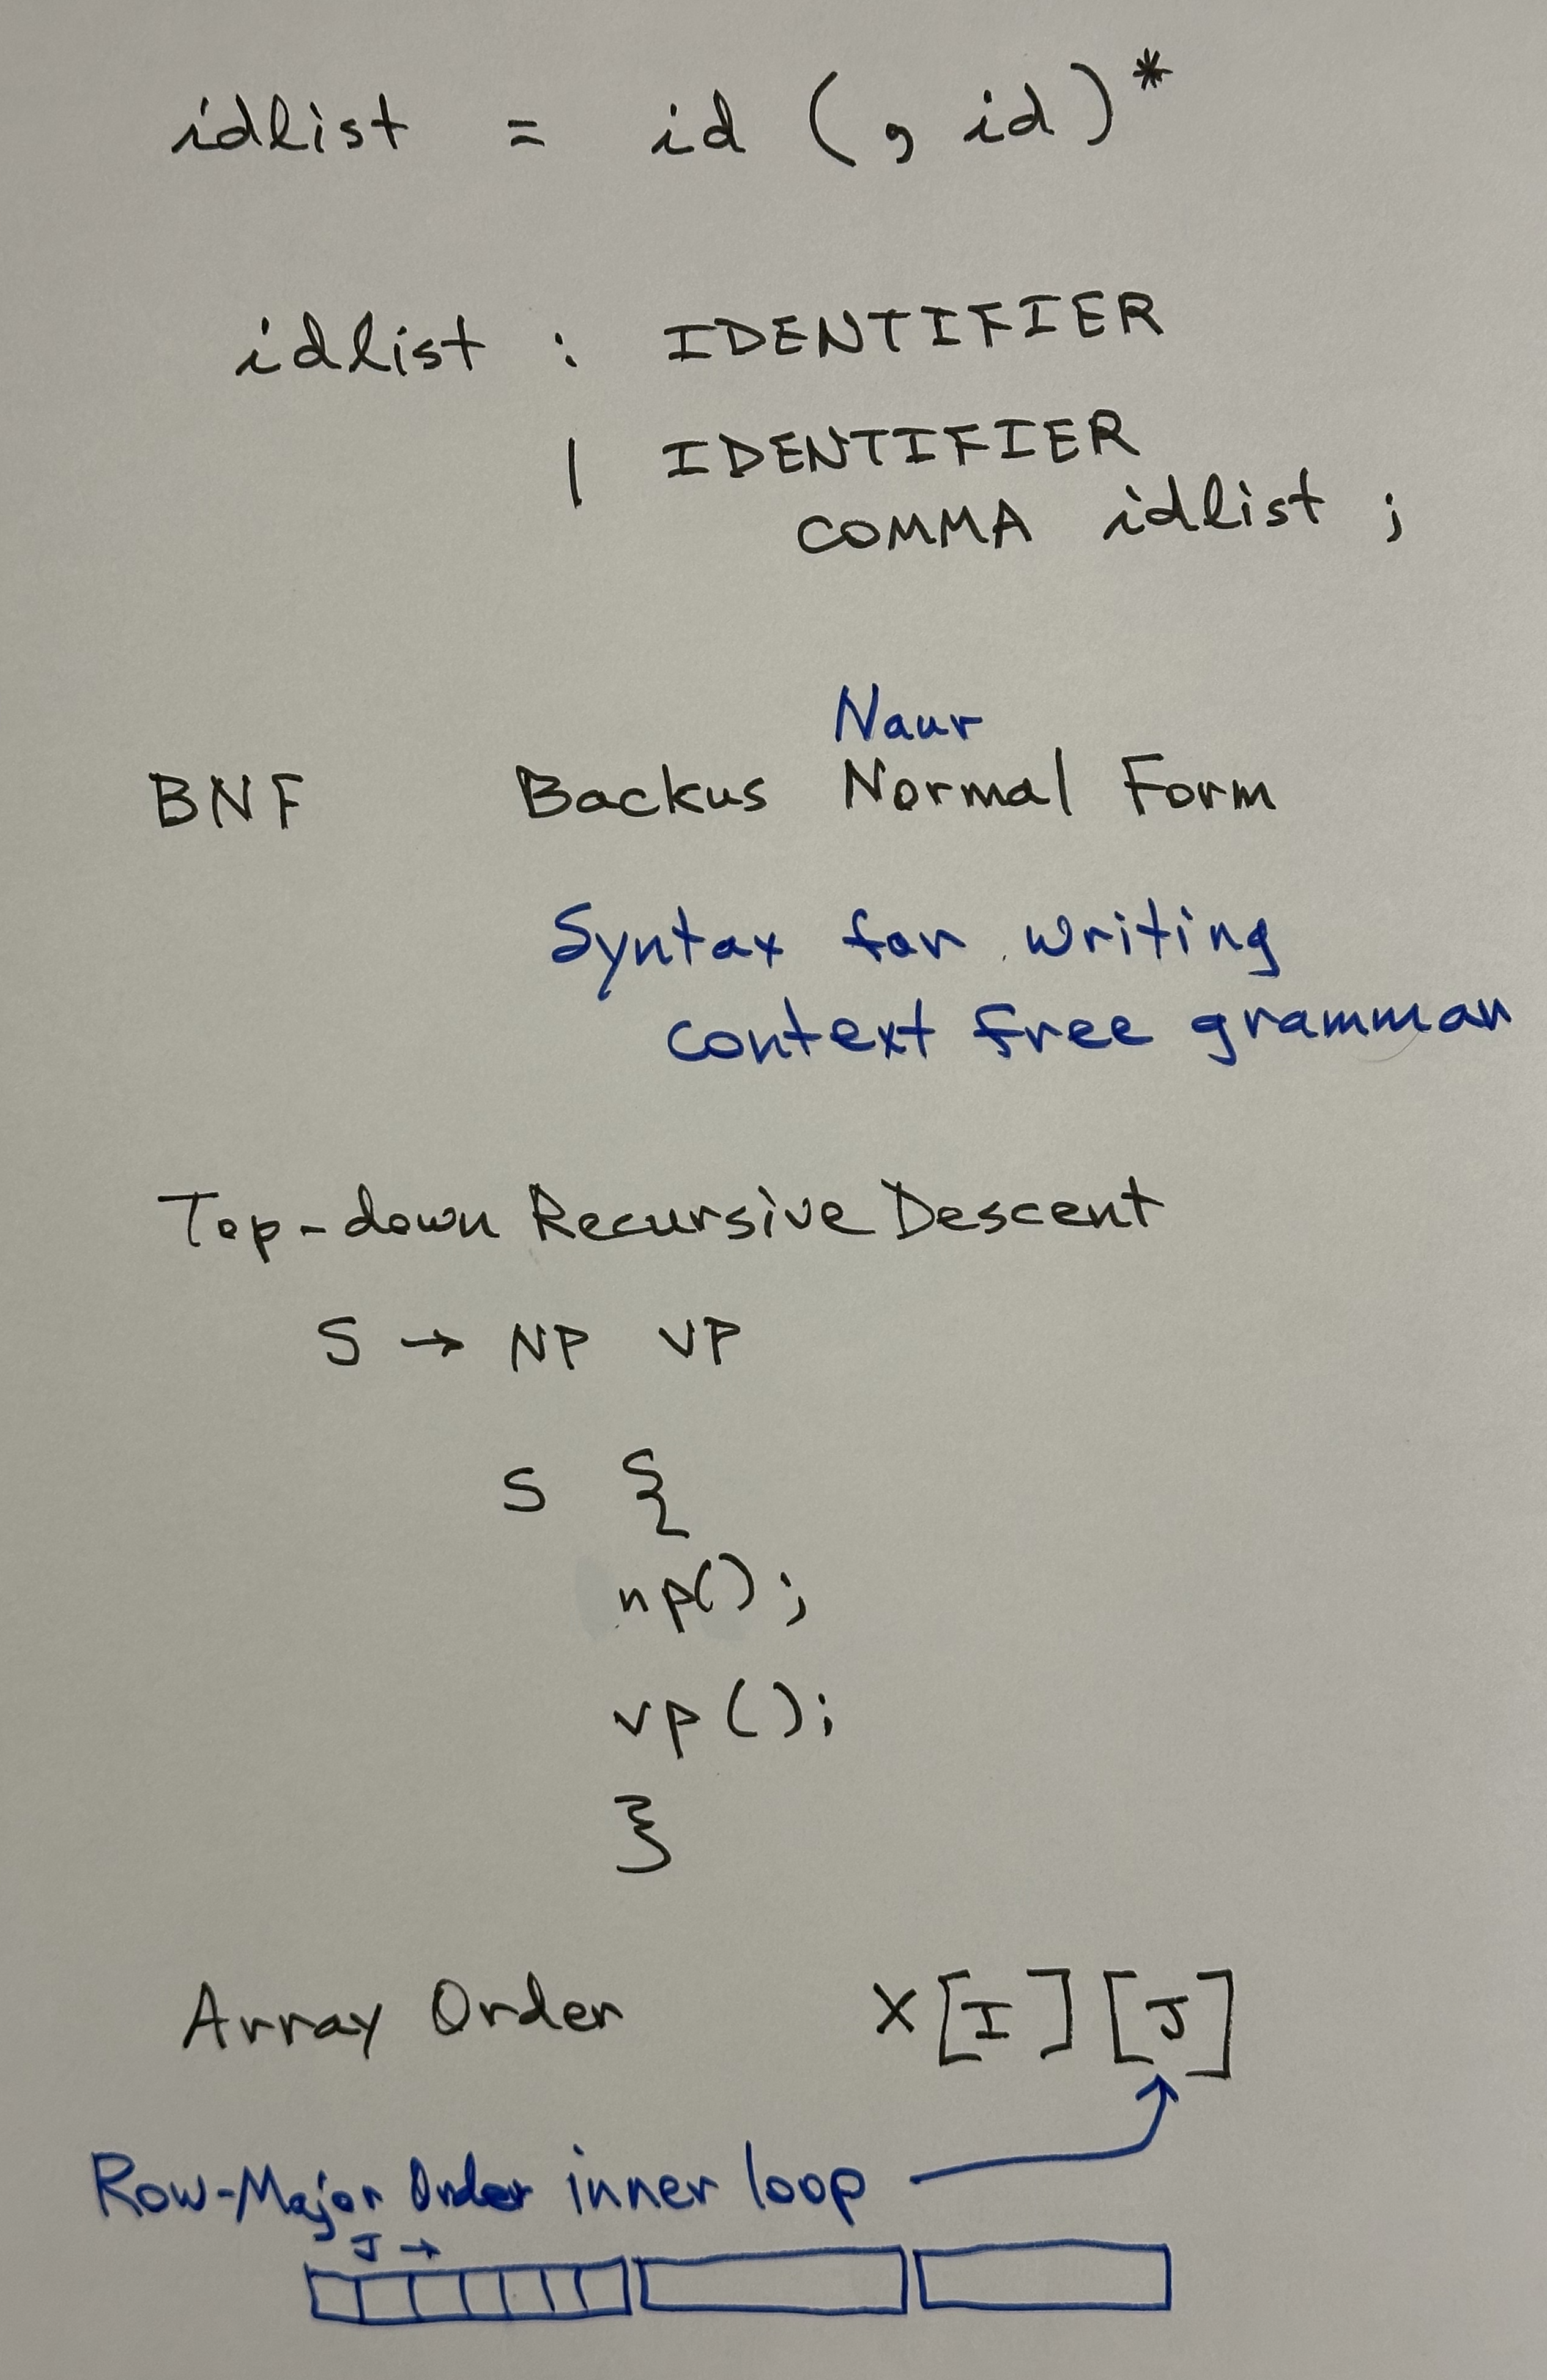 idlist = id (, id)*
idlist : IDENTIFIER
| IDENTIFIER
COMMA idlist ;
Naur
BNF Backus Normal Form
Syntax for writing
context free grammar
Top-down Recursive Descent
S → NP VP
S {
np();
vp();
}
Array Order X[I][J]
Row-Major Order inner loop
J →